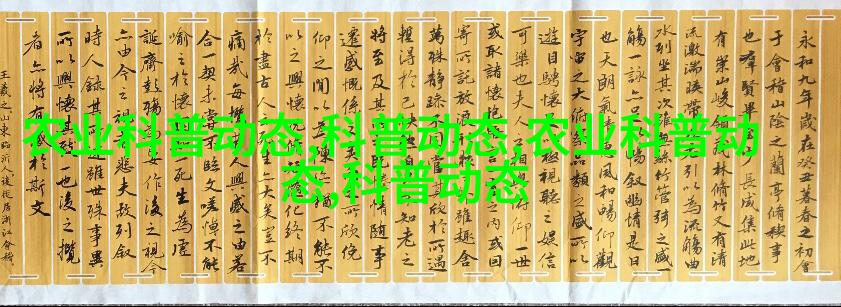 农业科普动态,科普动态,农业科普动
态,科普动态
永和九年歲在癸丑暮春之初會
于會稽山陰之蘭亭脩稧事
也群賢畢長咸集此地
有崇山峻領茂林脩竹又有清
流激湍暎帶引以為流觴曲
水列坐其次雖無絲竹管弦之盛一
觴一詠亦足暢敘幽情是日
也天朗氣清惠風和暢仰觀
宇宙之大俯察品類之盛所以
遊目騁懷極視聽之娛信
可樂也夫人之相俯仰一世
或取諸懷抱之內或因
寄所託放浪雖趣舍
萬殊靜躁當其欣於所遇
暫得於己快自知老之
將至及其既情隨事
遷感慨係所欣俛
仰之閒以為陳猶不能不
以之興懷況化終期
於盡古人云大矣豈不
痛哉每攬人興感之由若
合一契未嘗臨文嗟悼不能
喻之於懷死生為虛
誕齊彭殤為妄作後之視今
亦由今之視悲夫故列敘
時人錄其雖世殊事異
所以興懷其致一也後之攬
者亦將有感於斯文
王羲之山東臨沂人後徙居浙江會稽